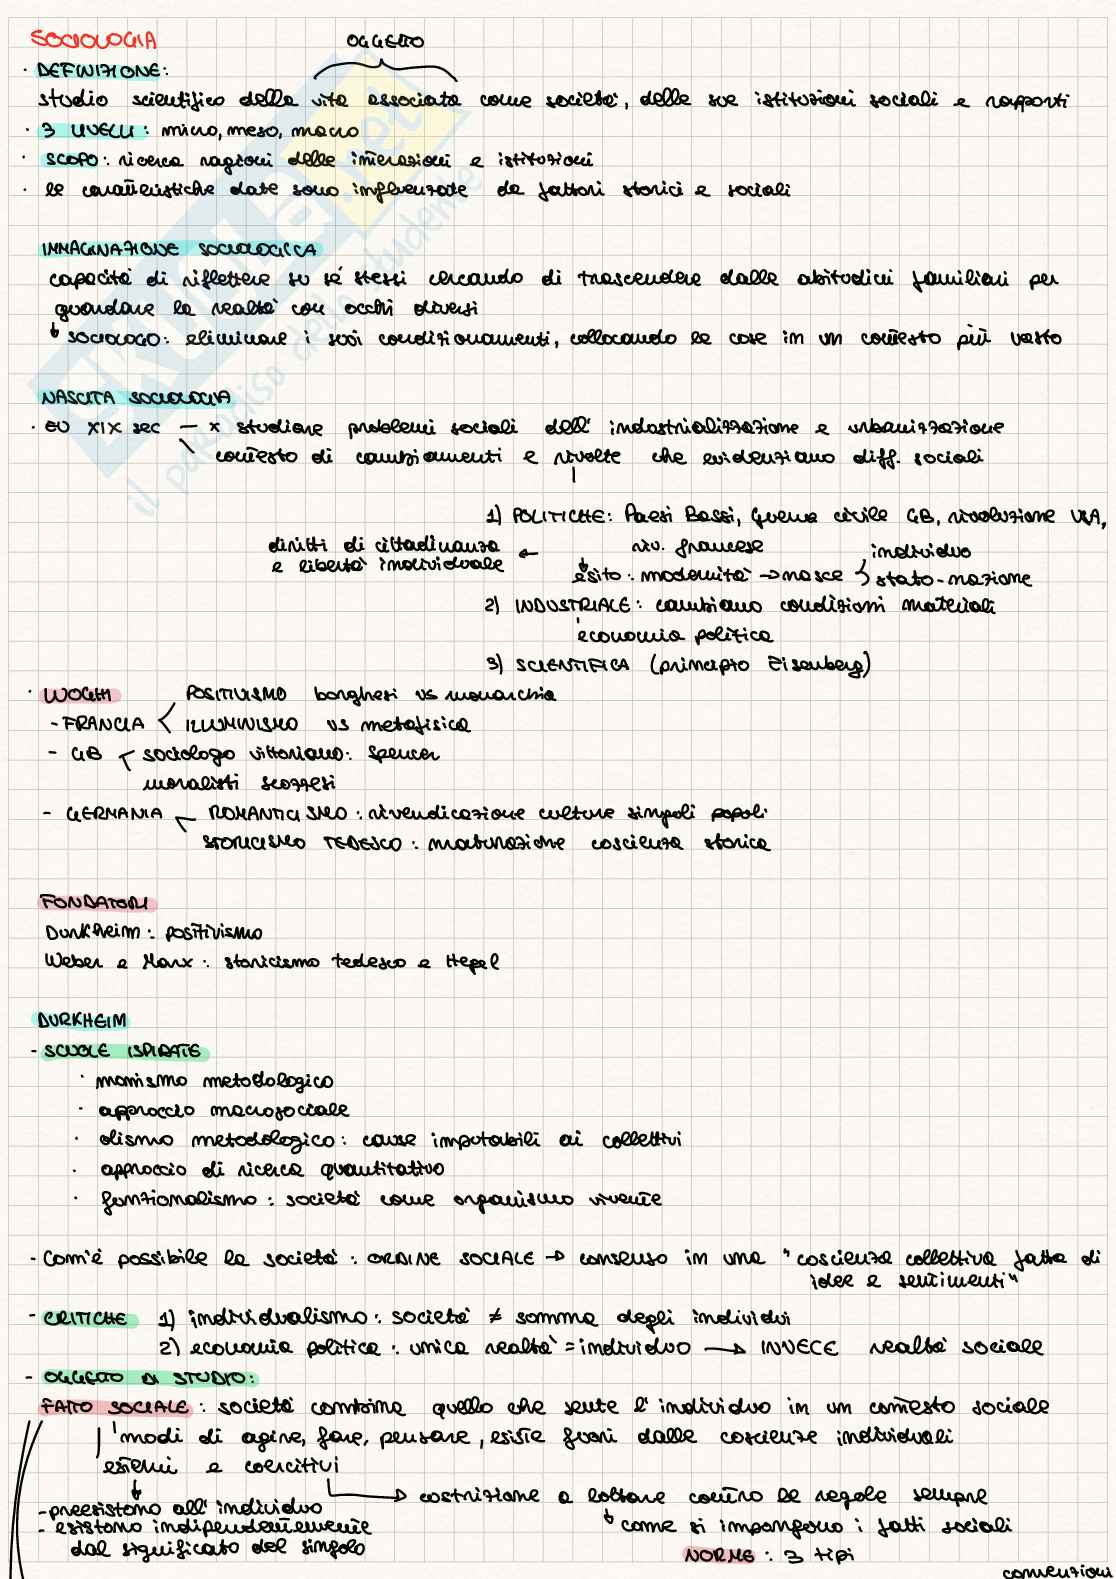 SOCIOLOGIA
OGGETTO
· DEFINIZIONE:
studio scientifico della vita associata come società, delle sue istituzioni sociali e rapporti
· 3 LIVELLI: micro, meso, macro
· SCOPO: ricerca ragioni delle interazioni e istituzioni
· le caratteristiche date sono influenzate da fattori storici e sociali
IMMAGINAZIONE SOCIOLOGICA
capacità di riflettere su sé stessi cercando di trascendere dalle abitudini familiari per
guardare la realtà con occhi diversi
↳ SOCIOLOGO: eliminare i suoi condizionamenti, collocando le cose in un contesto più vasto
NASCITA SOCIOLOGIA
· EU XIX sec — x studiare problemi sociali dell'industrializzazione e urbanizzazione
contesto di cambiamenti e rivolte che evidenziano diff. sociali
1) POLITICHE: Paesi Bassi, Guerra civile GB, rivoluzione USA,
riv. francese
diritti di cittadinanza
e libertà individuale
←
esito: modernità → nasce
individuo
stato-nazione
2) INDUSTRIALE: cambiano condizioni materiali
economia politica
3) SCIENTIFICA (principio Eisenberg)
· LUOGHI
- FRANCIA
POSITIVISMO borghesi vs monarchia
ILLUMINISMO vs metafisica
- GB
sociologo vittoriano: Spencer
moralisti scozzesi
- GERMANIA
ROMANTICISMO: rivendicazione culture singoli popoli
STORICISMO TEDESCO: maturazione coscienza storica
FONDATORI
Durkheim: positivismo
Weber e Marx: storicismo tedesco e Hegel
DURKHEIM
- SCUOLE ISPIRATE
· monismo metodologico
· approccio macrosociale
· olismo metodologico: cause imputabili ai collettivi
· approccio di ricerca quantitativo
· funzionalismo: società come organismo vivente
- Com'è possibile la società: ORDINE SOCIALE → consenso in una "coscienza collettiva fatta di
idee e sentimenti"
- CRITICHE 1) individualismo: società ≠ somma degli individui
2) economia politica: unica realtà = individuo → INVECE realtà sociale
- OGGETTO DI STUDIO:
FATTO SOCIALE: società combina quello che sente l'individuo in un contesto sociale
modi di agire, fare, pensare, esiste fuori dalle coscienze individuali
esterni e coercitivi
- preesistono all'individuo
- esistono indipendentemente
dal significato del singolo
→ costrizione a lottare contro le regole sempre
↳ come si impongono i fatti sociali
NORME: 3 tipi
convenzioni